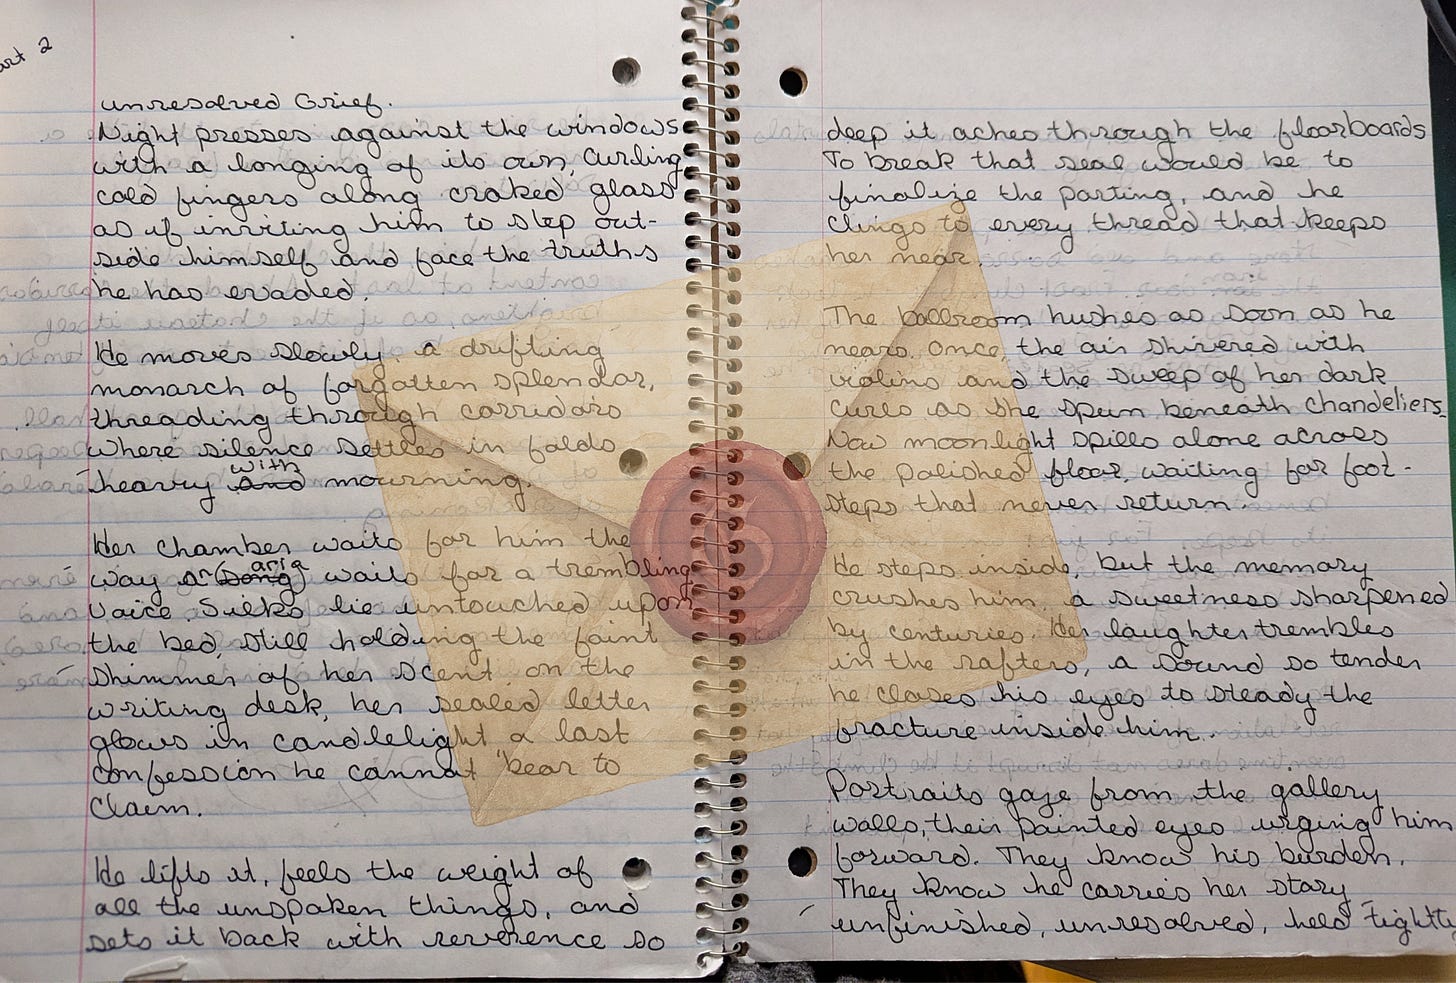 art 2
unresolved Grief.
Night presses against the windows
with a longing of its own, Curling
cold fingers along craked glass
as if inviting him to step out-
side himself and face the truths
he has evaded.
He moves slowly, a drifting
monarch of forgotten splendor,
threading through corridors
where silence settles in folds
with
heavy and mourning.
Her Chamber waits for him the
aria
way ar(song) waits for a trembling
voice. Silks lie untouched upon
the bed, still holding the faint
shimmer of her scent on the
writing desk, her sealed letter
glows in candlelight a last
confession he cannot bear to
Claim.
He lifts it, feels the weight of
all the unspoken things, and
sets it back with reverence so
deep it aches through the floorboards
To break that seal would be to
finalize the parting, and he
Clings to every thread that keeps
her near.
The ballroom hushes as soon as he
nears. Once, the air shivered with
violins and the sweep of her dark
curls as she spun beneath chandeliers.
Now moonlight spills alone across
the polished floor, waiting for foot-
steps that never return.
He steps inside, but the memory
crushes him, a sweetness sharpened
by centuries. Her laughter trembles
in the rafters, a sound so tender
he closes his eyes to steady the
fracture inside him.
Portraits gaze from the gallery
walls, their painted eyes urging him
forward. They know his burden.
They know he carries her story
unfinished, unresolved, held tightly